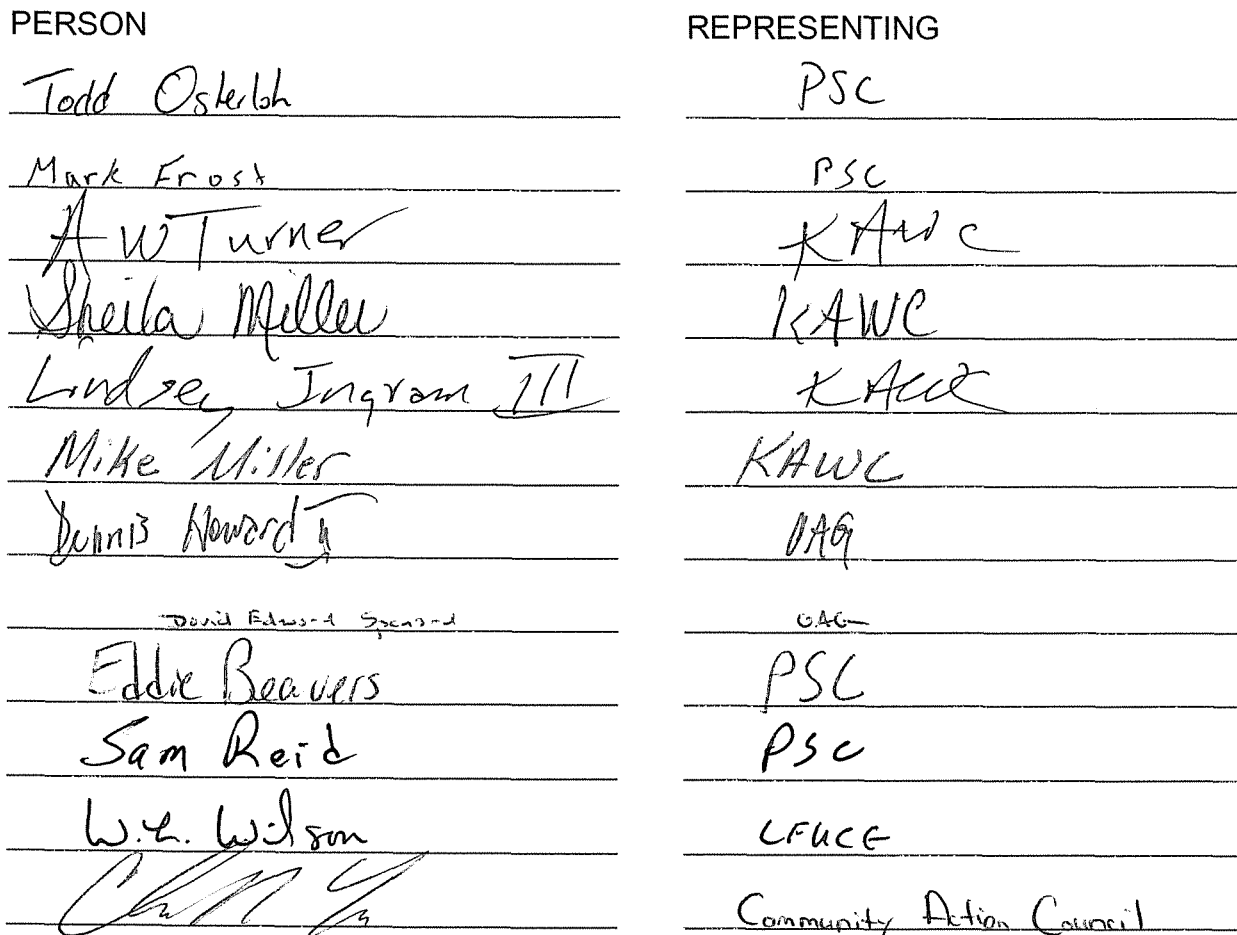 PERSON REPRESENTING
Todd Osterloh PSC
Mark Frost PSC
A W Turner KAWC
Sheila Miller KAWC
Lindsey Ingram III KAWC
Mike Miller KAWC
Dennis Howard II OAG
David Edward Spenard OAG
Eddie Beavers PSC
Sam Reid PSC
W.L. Wilson LFUCG
Community Action Council